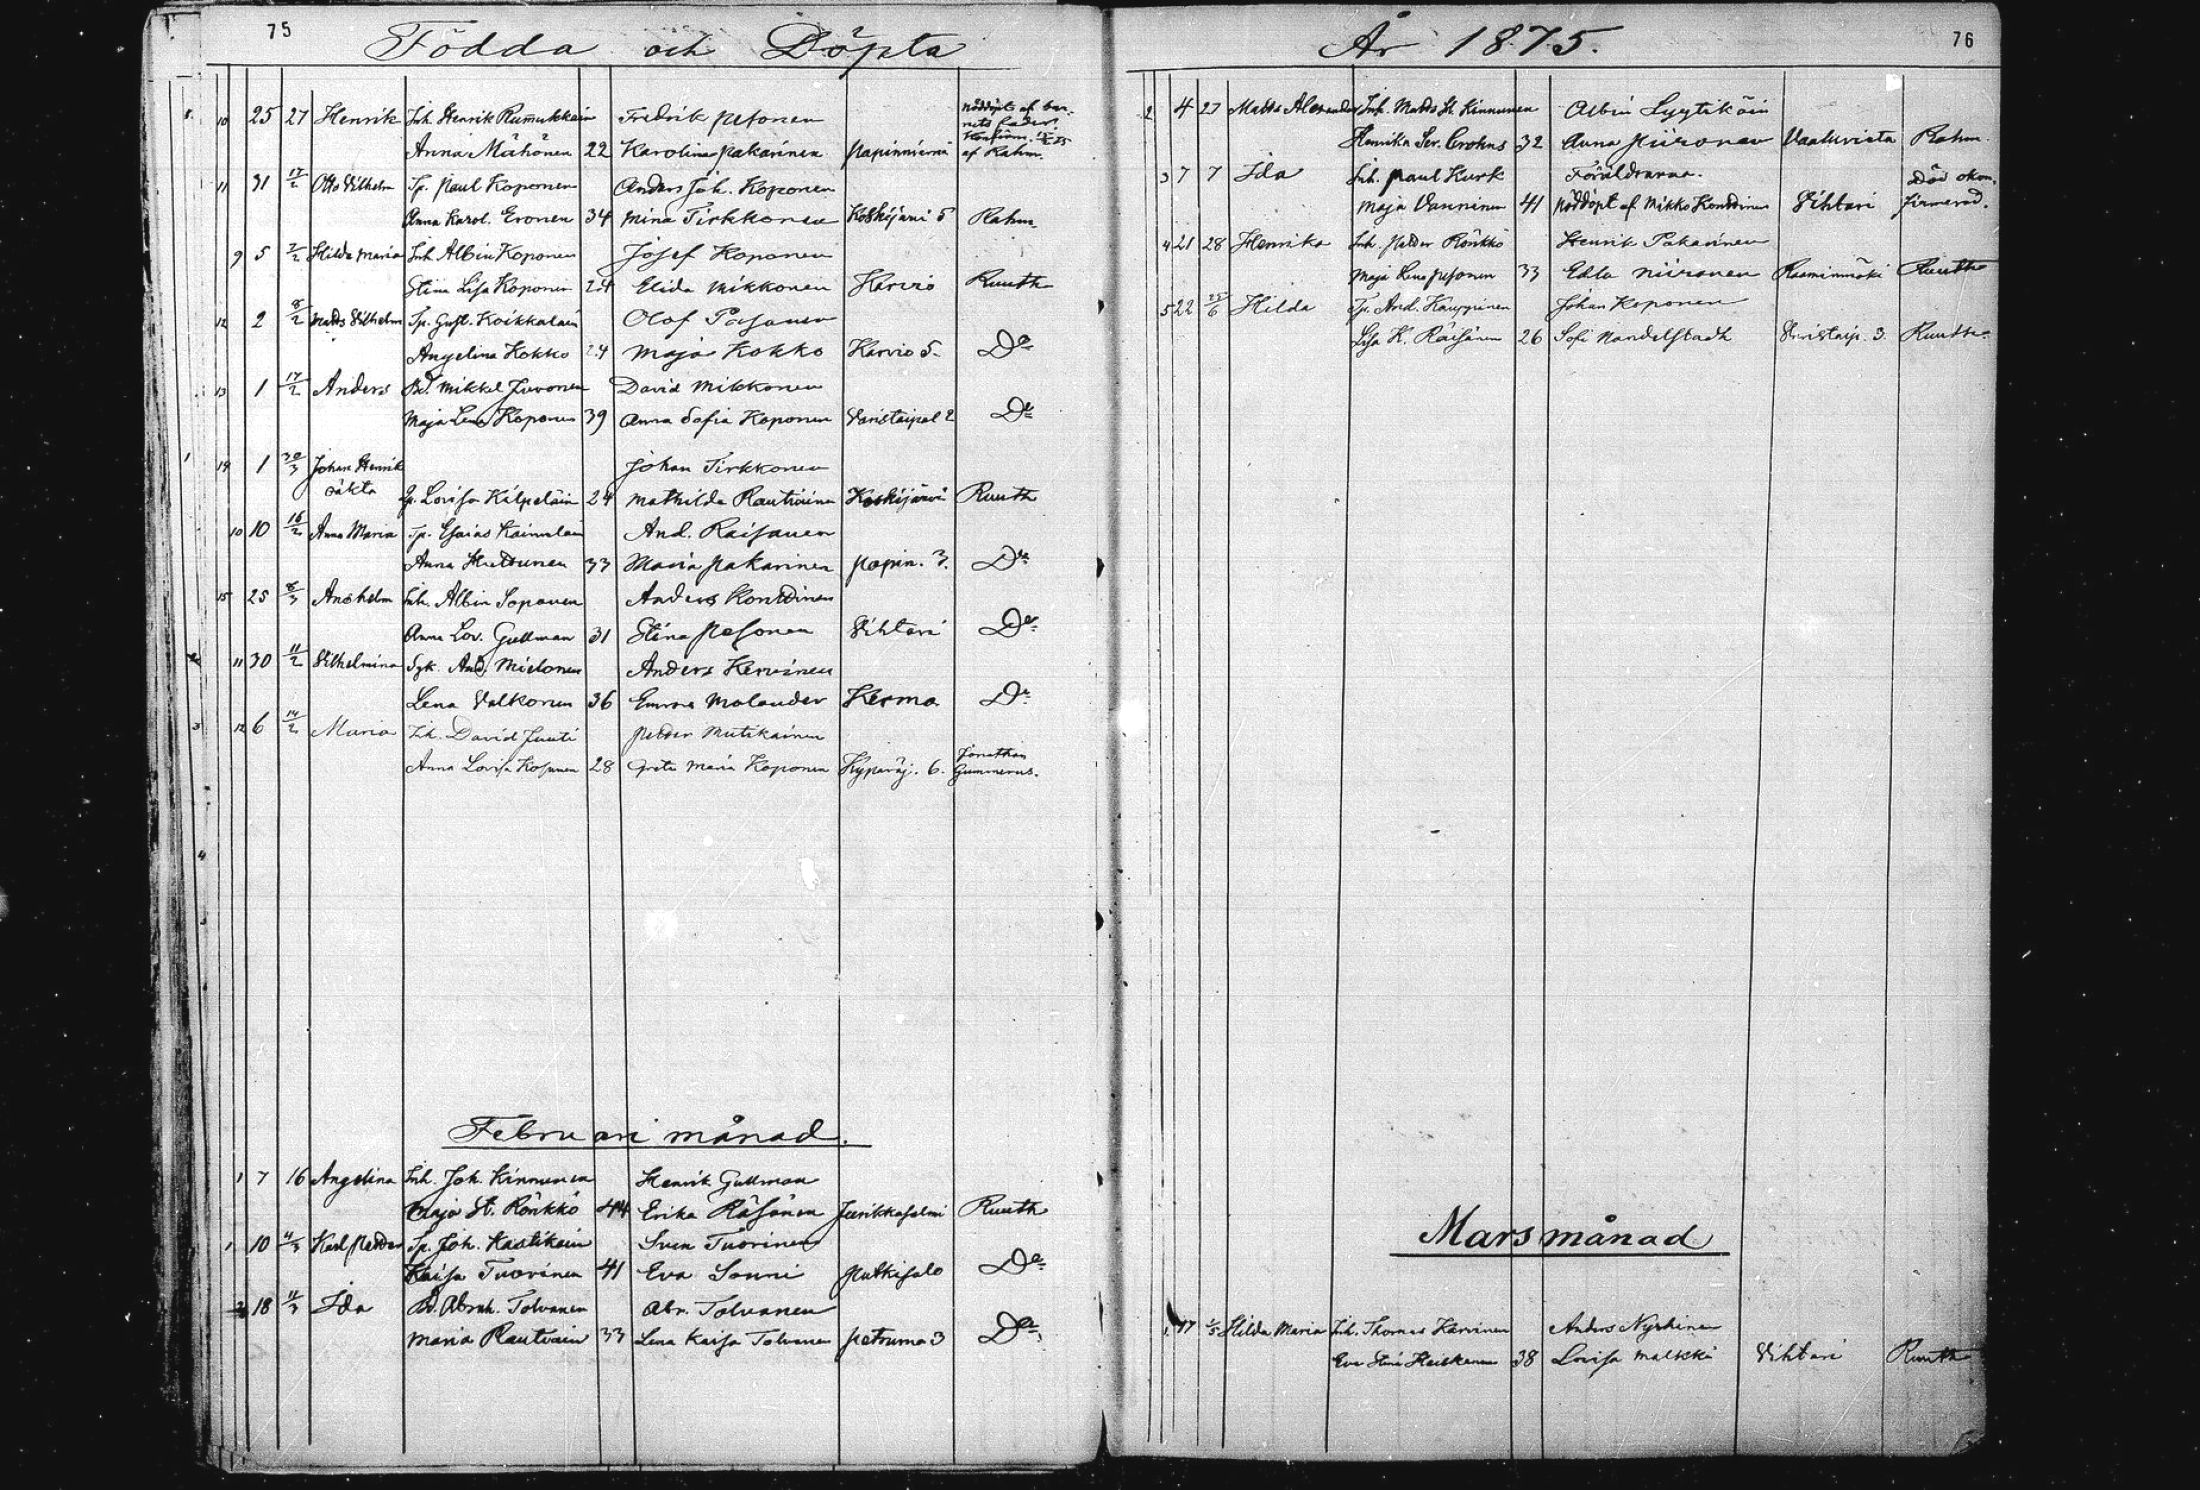 75
Födda och Döpta
10 25 27 Henrik Inh. Henrik Rumukkain Fredrik Pesonen Nöddöpt af bar-
nets fader
Konfirm.
Anna Mähönen 22 Karolina Pakarinen Papinniemi af Rahm.
11 31 17/2 Otto Vilhelm Tp. Paul Koponen Anders Joh. Koponen
Anna Karol. Eronen 34 Mina Tirkkonen Koskijärvi 5 Rahm.
9 5 2/2 Hilda Maria Inh. Albin Koponen Josef Koponen
Stina Lisa Koponen 24 Elida Mikkonen Karvio Ruuth
12 2 8/2 Matts Vilhelm Tp. Gust. Koikkalain Olof
Angelina Kokko 24 Maja Kokko Karvio 5. Do
13 1 17/2 Anders Bd. Mikkel Juvonen David Mikkonen
Maja Lena Koponen 39 Anna Sofia Koponen Varistaipal 2 Do
1 14 1 30/3 Johan Henrik Johan Tirkkonen
oäkta
Lovisa Kilpeläin 24 Mathilda Rautiainen Koskijärvi Ruuth
10 10 16/2 Anna Maria Tp. Esaias Kainulain And. Raisanen
Anna Huttunen 33 Maria Pakarinen Papin. 3. Do
15 25 8/3 Anshelm Inh. Albin Soponen Anders Konttinen
Anna Lov. Gullman 31 Stina Pesonen Vihtari Do
11 30 11/2 Vilhelmina And. Mielonen Anders Kervinen
Lena Valkonen 36 Emma Molander Kerma Do
3 12 6 14/2 Maria David Juuti Petter Mutikainen
Anna Lovisa Kosunen 28 Greta Maria Koponen Kypäräj. 6. Jonathan
Gummerus.
4
Februari månad.
1 7 16 Angelina Inh. Joh. Kinnunen Henrik Gullman
Maja St. Rönkkö 44 Erika Räsänen Juurikkasalmi Ruuth
1 10 4/3 Karl Petter Tp. Joh. Kastikain Sven Tuorinen
Kaisa Tuovinen 41 Eva Sonni Putkisalo Do
2 18 11/3 Ida Bd. Abrah. Tolvanen Abr. Tolvanen
Maria Rautiain 33 Lena Kaisa Tolvanen Petruma 3 Do
År 1875.
76
2 4 27 Matts Alexander Inh. Matts H. Kinnunen Albin Lyytikäin
Henrika Ser. Crohns 32 Anna Piironen Vaaluvista Rahm.
3 7 7 Ida Inh. Paul Kurk Föräldrarna. Död okon-
Maja Vanninen 41 Nöddöpt af Mikko Konttinen Vihtari firmerad.
4 21 28 Henrika Inh. Petter Rönkkö Henrik Pakarinen
Maja Lena Pesonen 33 Edla Niiranen Raaminmäki Ruuth
5 22 25/6 Hilda Tp. And. Kauppinen Johan Koponen
Lisa K. Räisänen 26 Sofi Nandelstadh Varistaip. 3. Ruuth
Mars månad
1. 17 2/5 Hilda Maria Inh. Thomas Karvinen Anders Nyrhinen
Eva Stina Heiskanen 38 Lovisa Malkki Vihtari Ruuth